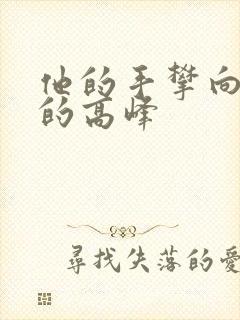 他的手攀向
的高峰
尋找失落的愛